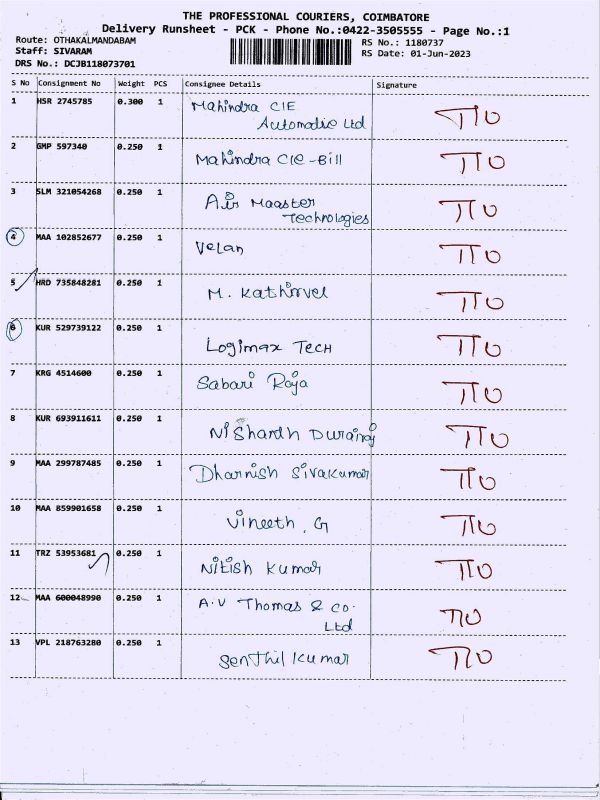 THE PROFESSIONAL COURIERS, COIMBATORE
Delivery Runsheet - PCK - Phone No.:0422-3505555 - Page No.:1
Route: OTHAKALMANDABAM RS No.: 1180737
Staff: SIVARAM RS Date: 01-Jun-2023
DRS No.: DCJB118073701
S No Consignment No Weight PCS Consignee Details Signature
1 HSR 2745785 0.300 1 Mahindra CIE
Automotive Ltd
2 GMP 597340 0.250 1 Mahindra CIE-Bill
3 SLM 321054268 0.250 1 Air Maaster
Technologies
4 MAA 102852677 0.250 1 Velan
5 HRD 735848281 0.250 1 M. Kathirvel
6 KUR 529739122 0.250 1 Logimax Tech
7 KRG 4514600 0.250 1 Sabari Raja
8 KUR 693911611 0.250 1 Nishardh Durairaj
9 MAA 299787485 0.250 1 Dharnish Sivakumar
10 MAA 859901658 0.250 1 Vineeth. G
11 TRZ 53953681 0.250 1 Nitish Kumar
12 MAA 600048990 0.250 1 A.V Thomas & Co.
Ltd
13 VPL 218763280 0.250 1 Senthil Kumar